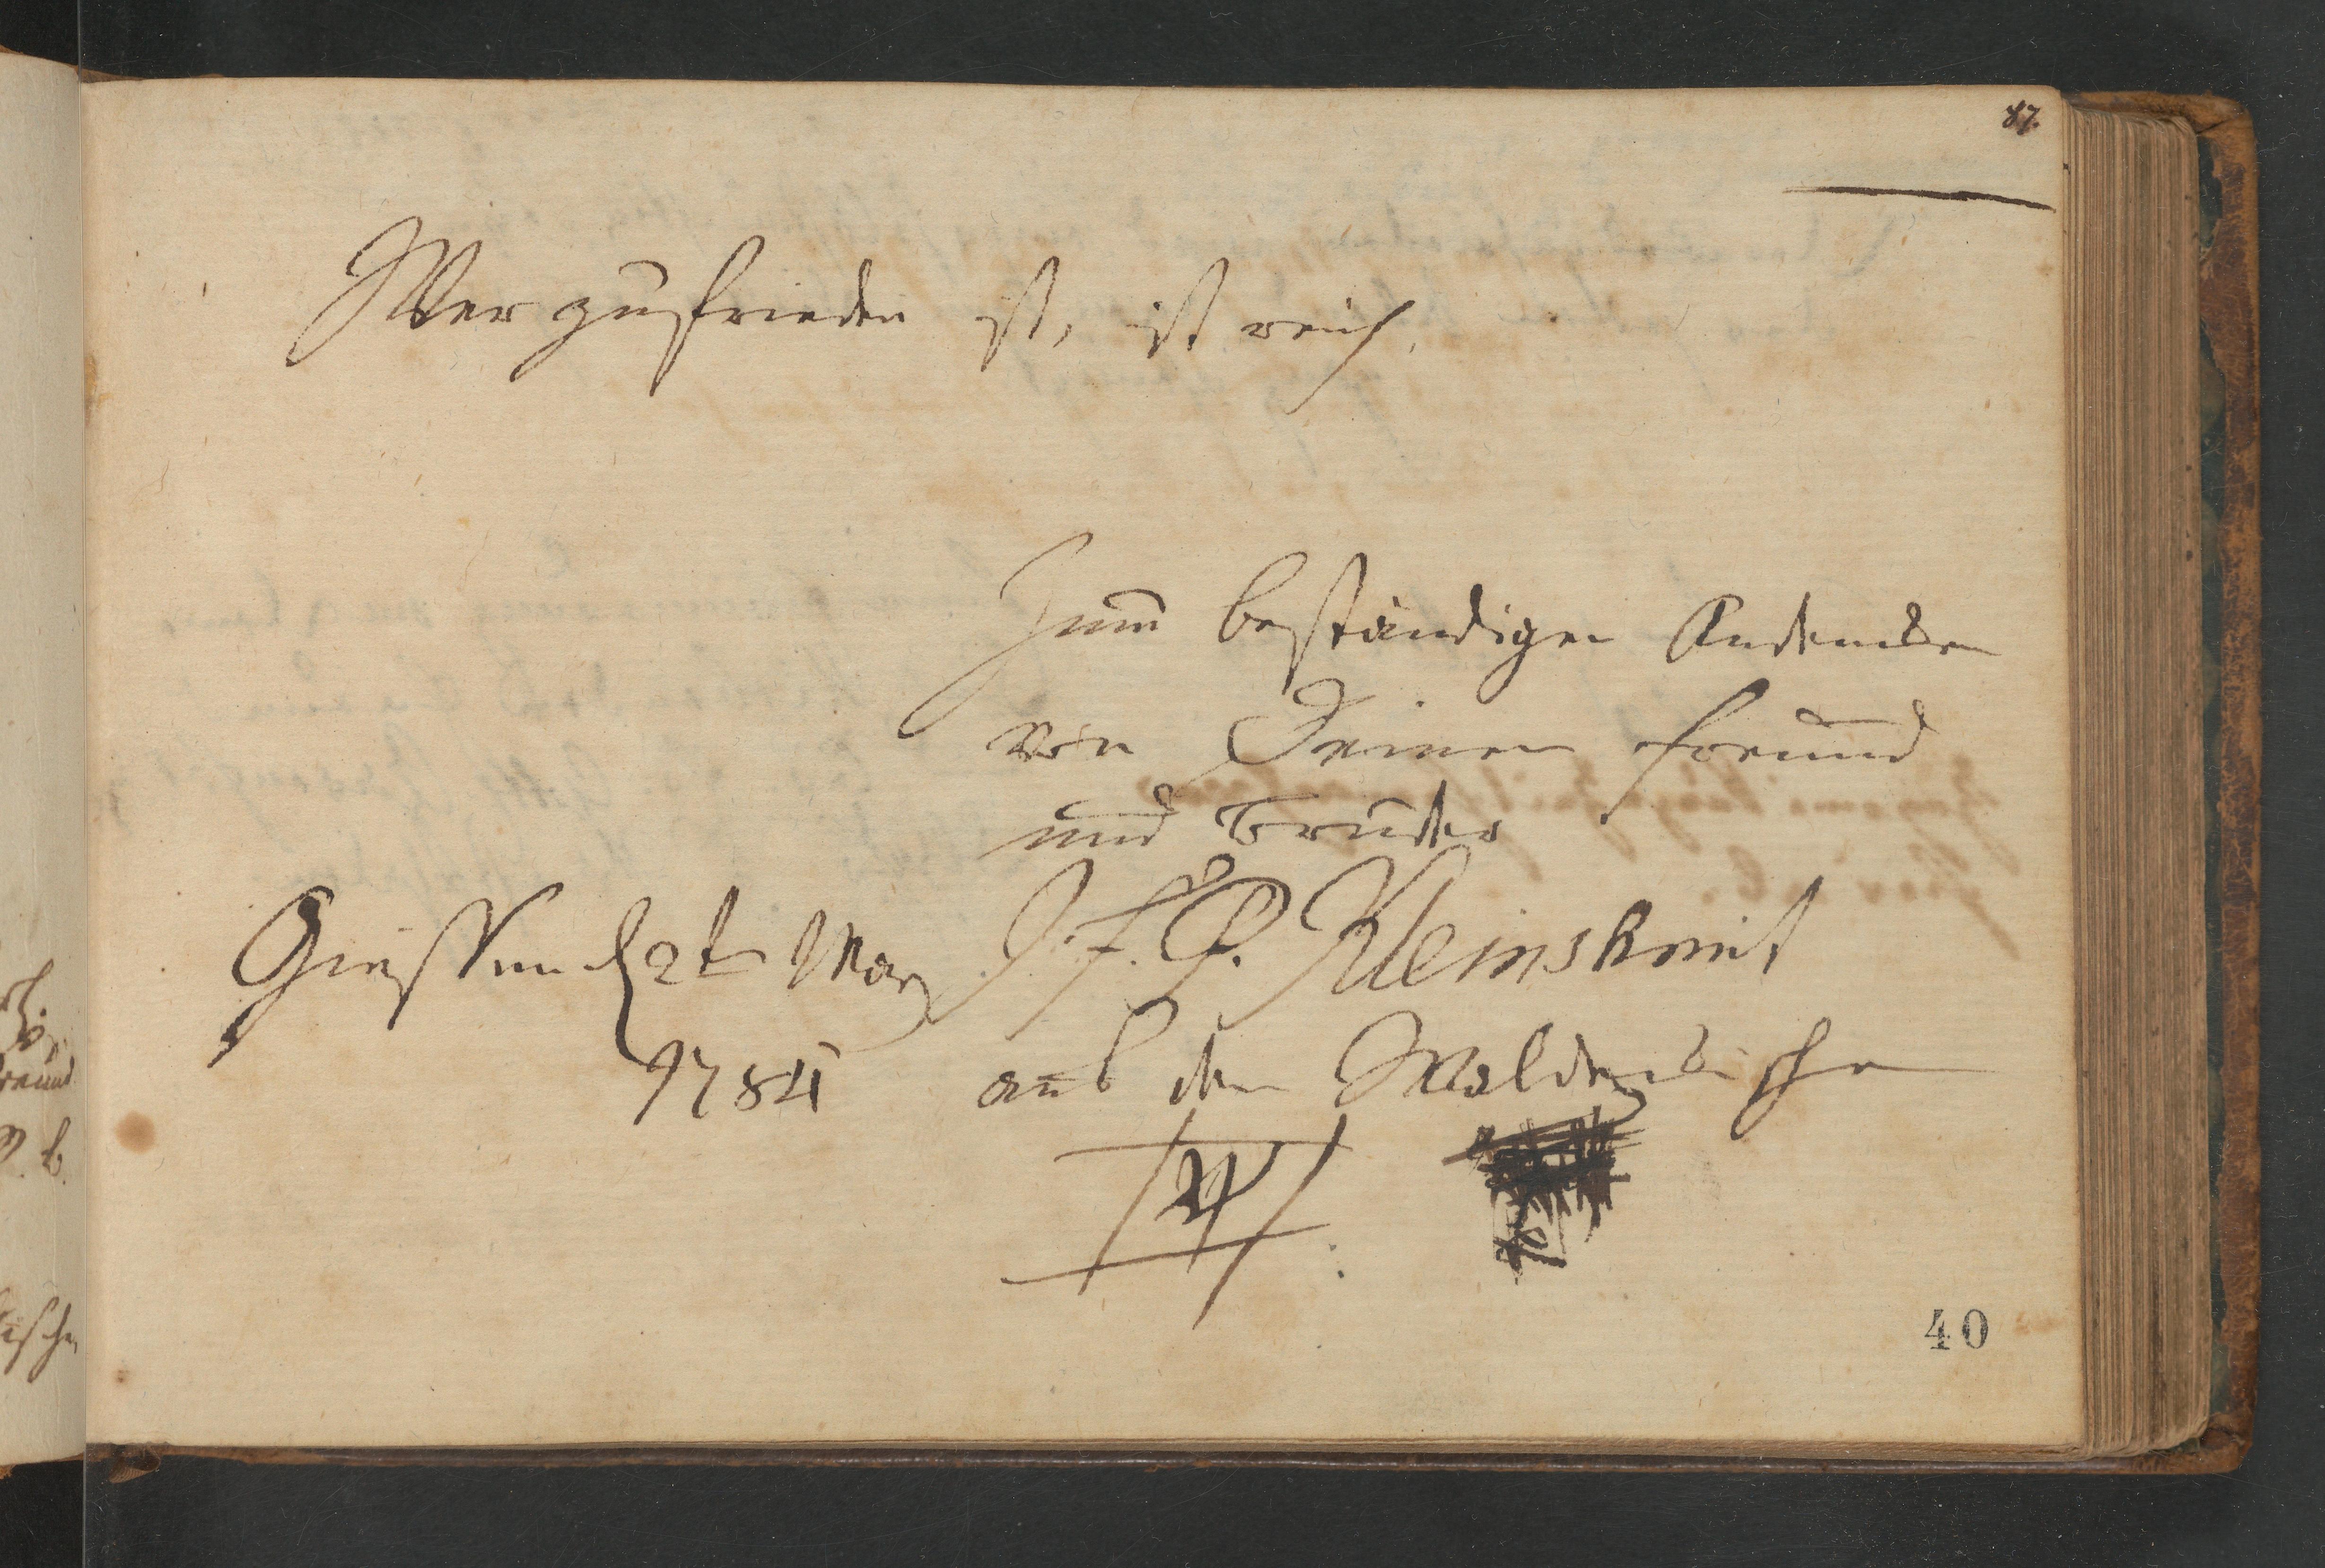 87.
Wer zufrieden ist, ist reich.
Zum beständigen Andencken
von Deinem Freund
und Bruder
Giessen d 2t Merz J. F. C. Kleinschmit
1784 aus dem Waldeckischen
40